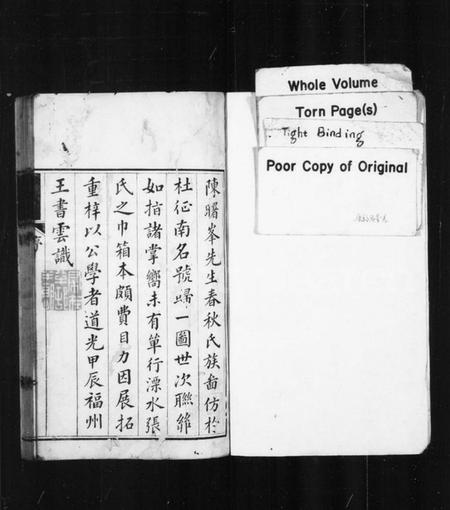 Whole Volume
Torn Page(s)
Tight Binding
Poor Copy of Original
陳曙峯先生春秋氏族啚仿於
杜征南名號歸一圖世次聯雒
如指諸掌嚮未有單行溧水張
氏之巾箱本頗費目力因展拓
重梓以公學者道光甲辰福州
王書雲識